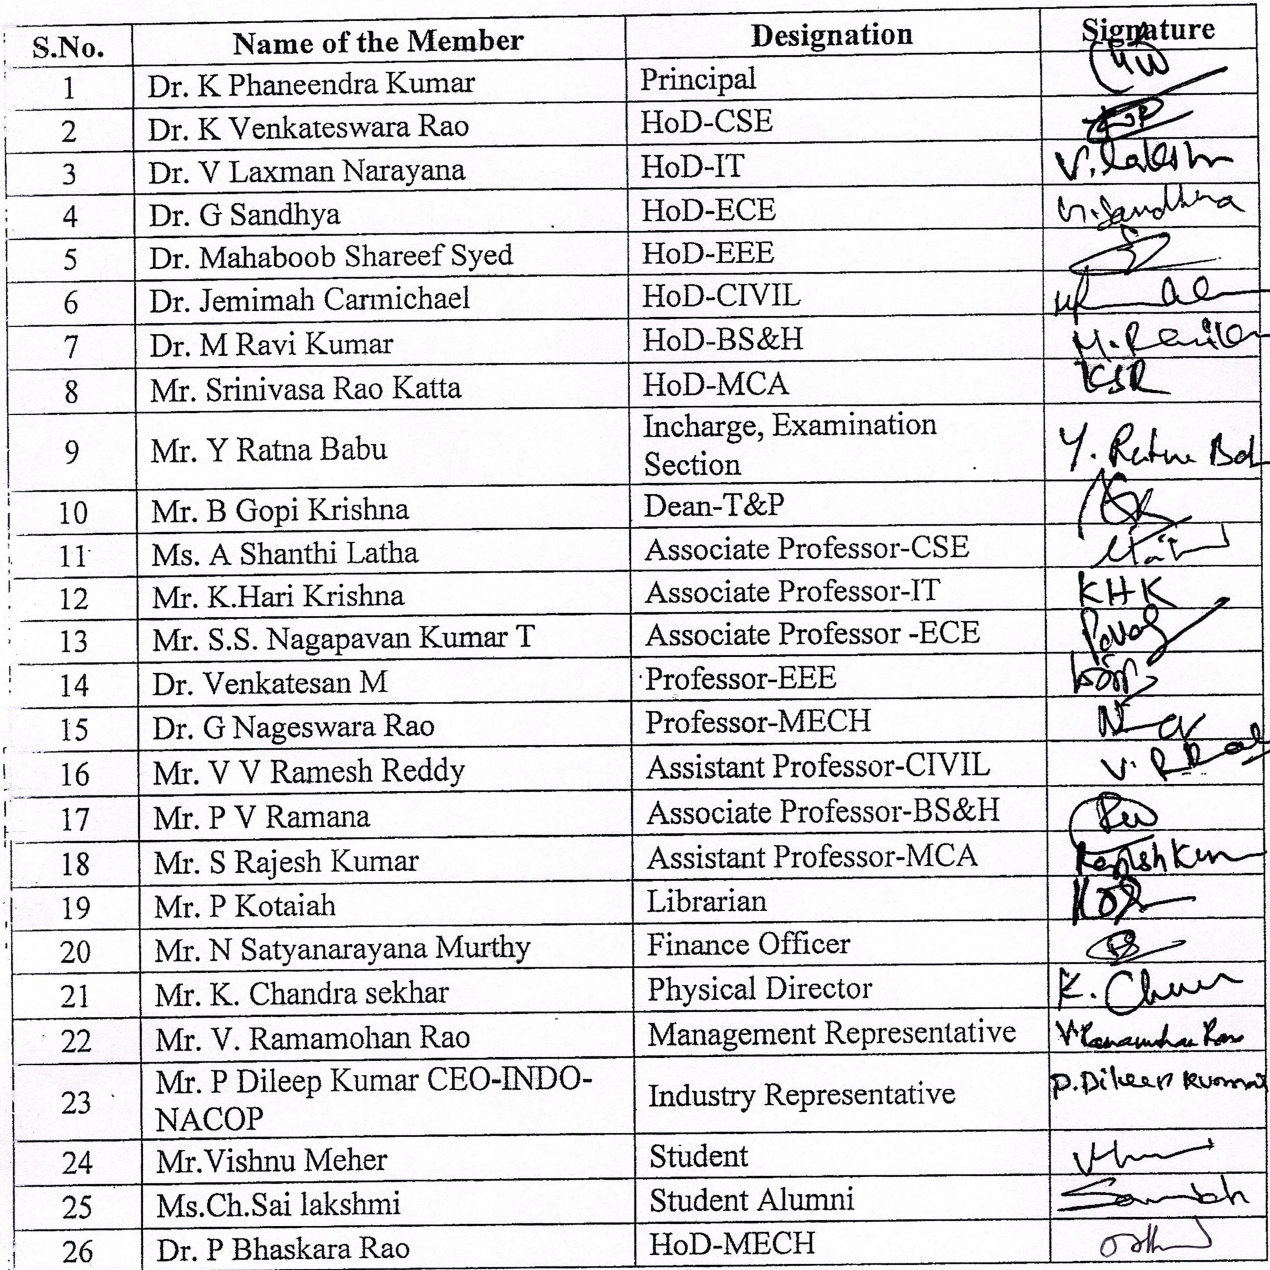 S.No. Name of the Member Designation Signature
1 Dr. K Phaneendra Kumar Principal
2 Dr. K Venkateswara Rao HoD-CSE
3 Dr. V Laxman Narayana HoD-IT V. Laksh
4 Dr. G Sandhya HoD-ECE G. Sandhya
5 Dr. Mahaboob Shareef Syed HoD-EEE
6 Dr. Jemimah Carmichael HoD-CIVIL
7 Dr. M Ravi Kumar HoD-BS&H
8 Mr. Srinivasa Rao Katta HoD-MCA KSR
9 Mr. Y Ratna Babu Incharge, Examination
Section Y. Ratna Bab
10 Mr. B Gopi Krishna Dean-T&P
11 Ms. A Shanthi Latha Associate Professor-CSE
12 Mr. K.Hari Krishna Associate Professor-IT KHK
13 Mr. S.S. Nagapavan Kumar T Associate Professor -ECE
14 Dr. Venkatesan M Professor-EEE
15 Dr. G Nageswara Rao Professor-MECH
16 Mr. V V Ramesh Reddy Assistant Professor-CIVIL
17 Mr. P V Ramana Associate Professor-BS&H
18 Mr. S Rajesh Kumar Assistant Professor-MCA
19 Mr. P Kotaiah Librarian
20 Mr. N Satyanarayana Murthy Finance Officer
21 Mr. K. Chandra sekhar Physical Director
22 Mr. V. Ramamohan Rao Management Representative V Ramamohan Rao
23 Mr. P Dileep Kumar CEO-INDO-
NACOP Industry Representative P. Dileep Kumar
24 Mr.Vishnu Meher Student
25 Ms.Ch.Sai lakshmi Student Alumni
26 Dr. P Bhaskara Rao HoD-MECH